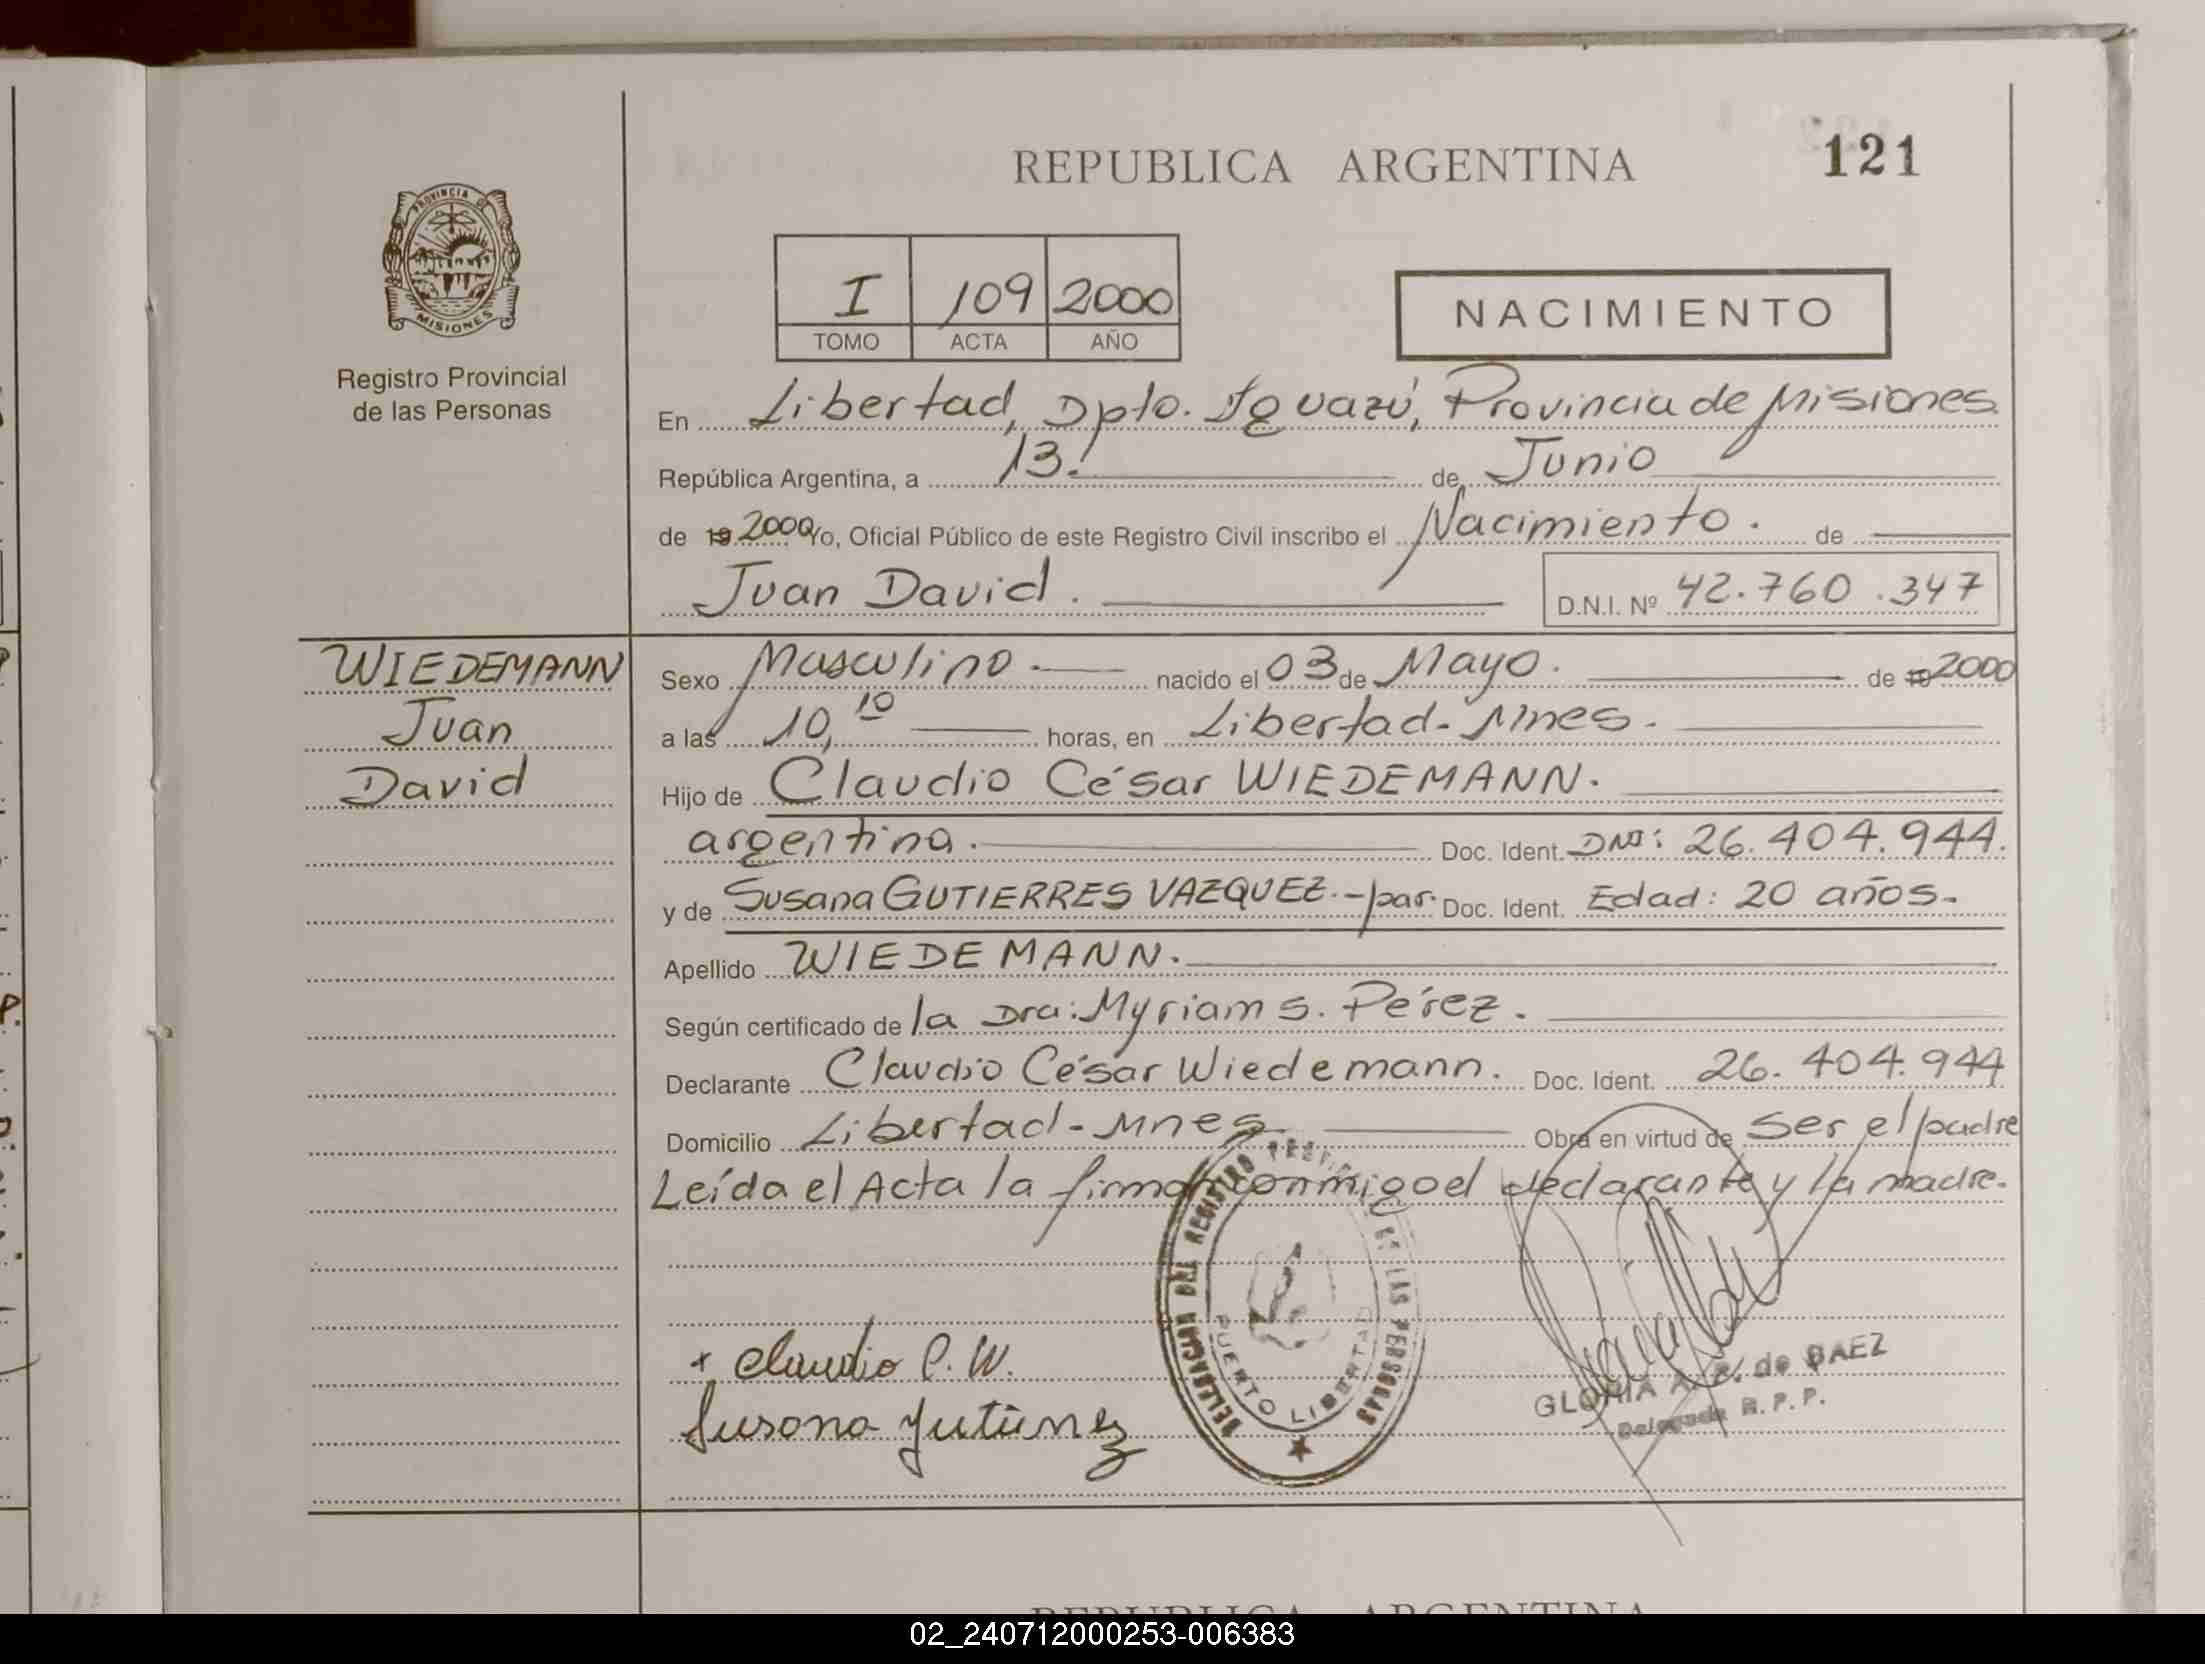 REPUBLICA ARGENTINA
121
PROVINCIA DE
MISIONES
Registro Provincial
de las Personas
I 109 2000
TOMO ACTA AÑO
NACIMIENTO
En Libertad, Dpto. Iguazú, Provincia de Misiones
República Argentina, a 13. de Junio
de 19 2000 Yo, Oficial Público de este Registro Civil inscribo el Nacimiento. de
Juan David. D.N.I. Nº 42.760.347
WIEDEMANN
Juan
David
Sexo Masculino. nacido el 03 de Mayo. de 19 2000
a las 10,10 horas, en Libertad- Mnes.
Hijo de Claudio César WIEDEMANN.
argentina. Doc. Ident. DNI: 26.404.944.
y de Susana GUTIERRES VAZQUEZ.- par. Doc. Ident. Edad: 20 años.
Apellido WIEDEMANN.
Según certificado de la Dra: Myriam S. Pérez.
Declarante Claudio César Wiedemann. Doc. Ident. 26.404.944
Domicilio Libertad- Mnes Obra en virtud de Ser el padre
Leída el Acta la firman conmigo el declarante y la madre.
DELEGACION DEL REGISTRO DE LAS PERSONAS
PUERTO LIBERTAD
+ Claudio C. W.
Susana Gutierrez
GLORIA A. de BAEZ
Delegada R.P.P.
REPUBLICA ARGENTINA
02_240712000253-006383